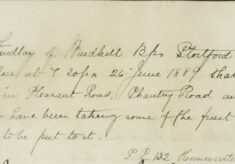 Findlay of Windhill Bps Stortford
at 7.20pm 26 June 1889 that
in Pleasant Road, Chantry Road an
have been taking some of the fruit
to be put to it.
P.S. 132